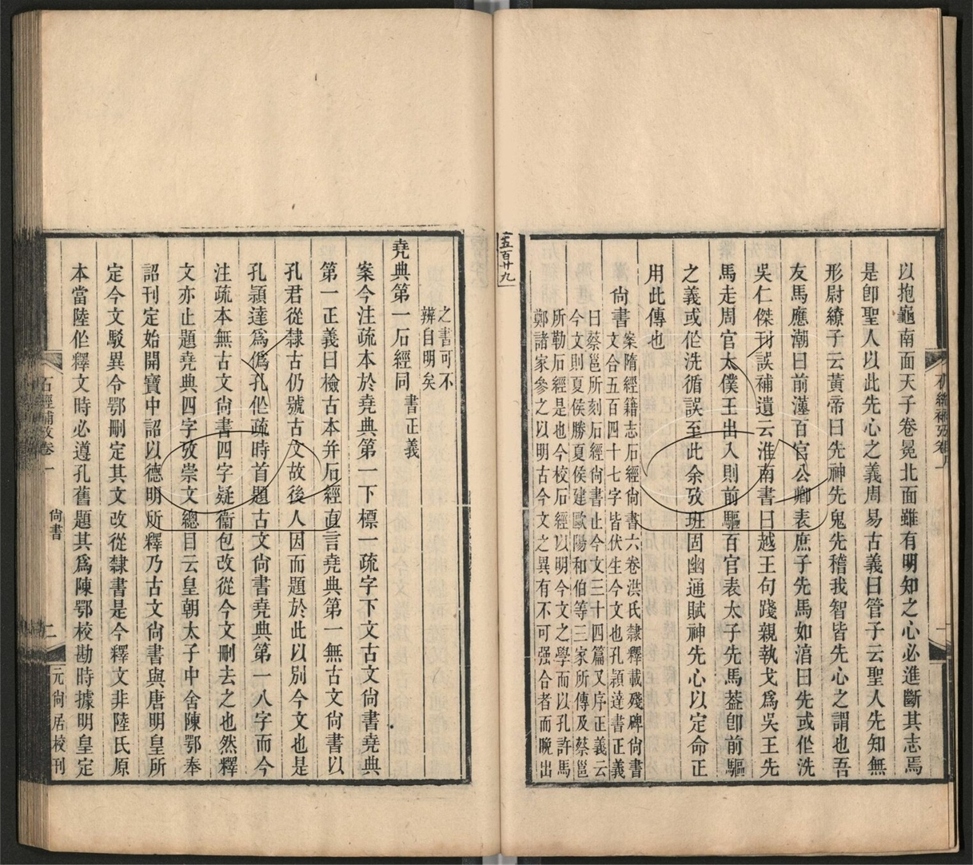 以抱龜南面天子卷冕北面雖有明知之心必進斷其志焉
是卽聖人以此先心之義周易古義曰管子云聖人先知無
形尉繚子云黃帝曰先神先鬼先稽我智皆先心之謂也吾
友馬應潮曰前漢百官公卿表庶子先馬如淳曰先或作洗
吳仁傑刊誤補遺云淮南書曰越王句踐親執戈爲吳王先
馬走周官太僕王出入則前驅百官表太子先馬葢卽前驅
之義或作洗循誤至此余攷班固幽通賦神先心以定命正
用此傳也
尙書
案隋經籍志石經尙書六卷洪氏隸釋載殘碑尙書
文合五百四十七字皆伏生今文也孔穎達書正義
曰蔡邕所刻石經尙書止今文三十四篇又序正義云
今文則夏侯勝夏侯建歐陽和伯等三家所傳及蔡邕
所勒石經是也今校石經以明今文之學而以孔許馬
鄭諸家參之以明古今文之異有不可强合者而晚出
五百廿九
之書可不
辨自明矣
堯典第一石經同
書正義
案今注疏本於堯典第一下標一疏字下文古文尙書堯典
第一正義曰檢古本并石經直言堯典第一無古文尙書以
孔君從隸古仍號古文故後人因而題於此以別今文也是
孔穎達爲僞孔作疏時首題古文尙書堯典第一八字而今
注疏本無古文尙書四字疑衞包改從今文刪去之也然釋
文亦止題堯典四字攷崇文總目云皇朝太子中舍陳鄂奉
詔刊定始開寶中詔以德明所釋乃古文尙書與唐明皇所
定今文駁異令鄂刪定其文改從隸書是今釋文非陸氏原
本當陸作釋文時必遵孔舊題其爲陳鄂校勘時據明皇定
石經補攷卷一
尙書
二
元尙居校刊